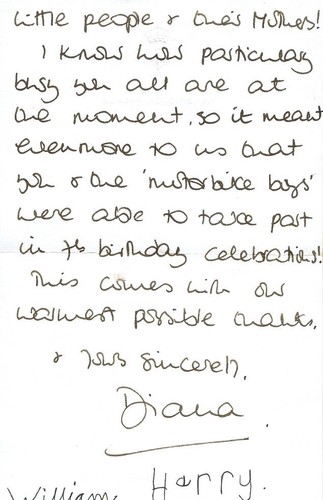 little people & their Mother!
I know how particularly
busy you all are at
the moment, so it meant
even more to us that
you & the 'motorbike boys'
were able to take part
in the birthday celebrations!
This comes with our
warmest possible thanks.
& Yours sincerely,
Diana.
William Harry.